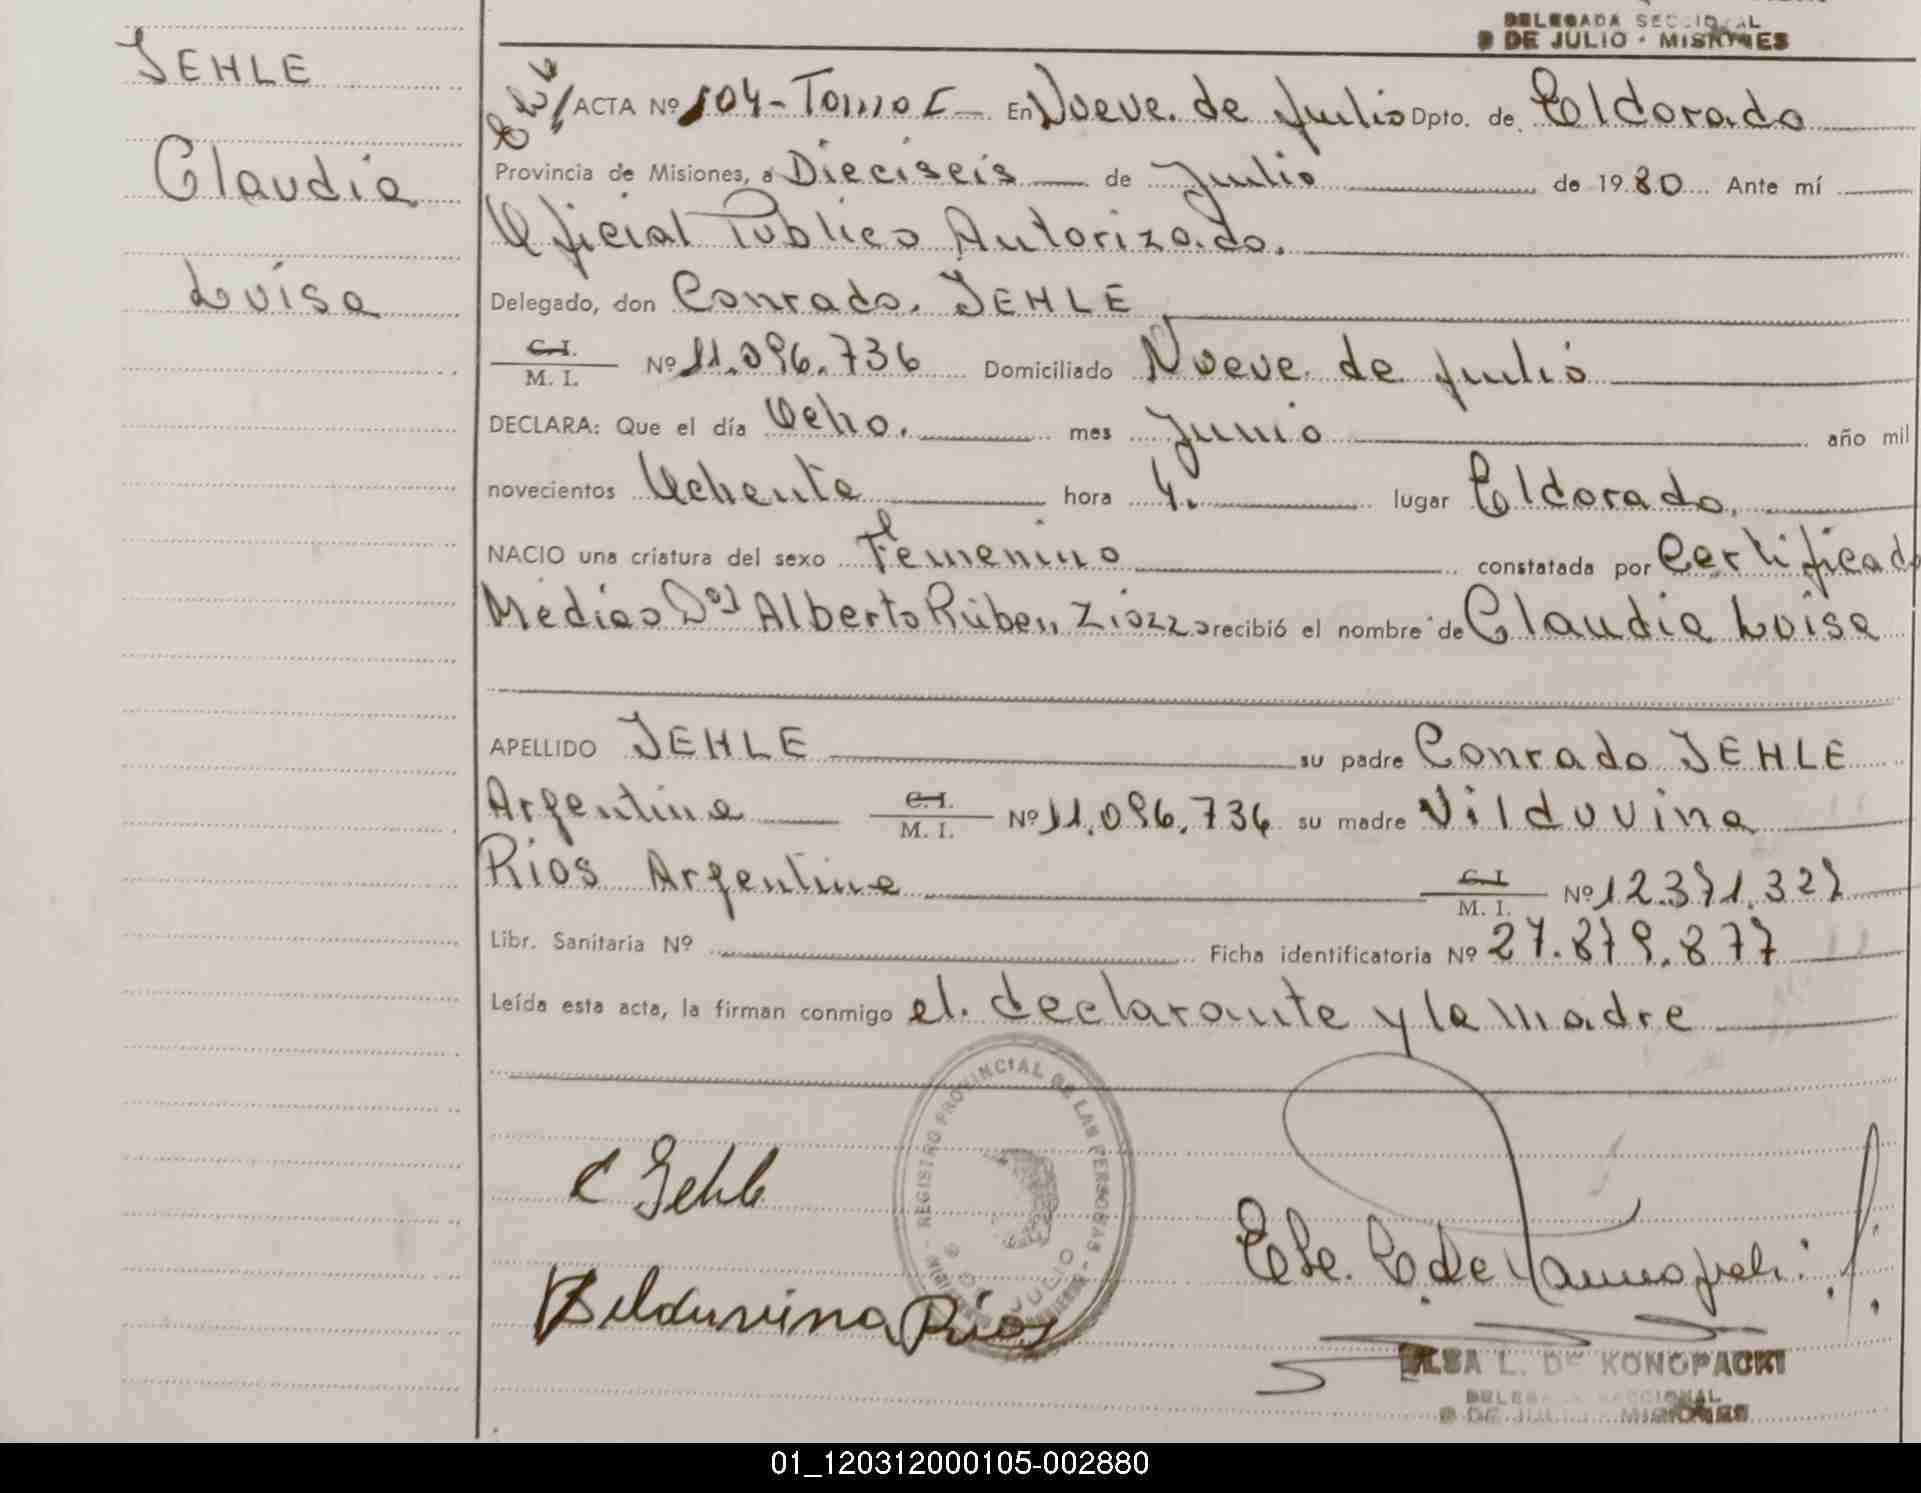 DELEGADA SECCIONAL
9 DE JULIO - MISIONES
JEHLE
Claudia
Luisa
ACTA Nº 104 - Tomo I - En Nueve de Julio Dpto. de Eldorado
Provincia de Misiones, a Dieciseis de Julio de 1980 Ante mí
Oficial Publico Autorizado.
Delegado, don Conrado JEHLE
C. I.
M. I. Nº 11.096.736 Domiciliado Nueve de Julio
DECLARA: Que el día Ocho. mes Junio año mil
novecientos Ochenta hora 4. lugar Eldorado.
NACIO una criatura del sexo Femenino constatada por Certificado
Medico Dor Alberto Rúben Ziozzo recibió el nombre de Claudia Luisa
APELLIDO JEHLE su padre Conrado JEHLE
Argentina C. I.
M. I. Nº 11.096.736 su madre Vilduvina
Rios Argentina C. I.
M. I. Nº 12.371.327
Libr. Sanitaria Nº Ficha identificatoria Nº 27.879.877
Leída esta acta, la firman conmigo el declarante y la madre
REGISTRO PROVINCIAL DE LAS PERSONAS
9 DE JULIO
C Jehle
Bilduvina Rios
ELSA L. DE KONOPACKI
DELEGADA SECCIONAL
9 DE JULIO - MISIONES
01_120312000105-002880